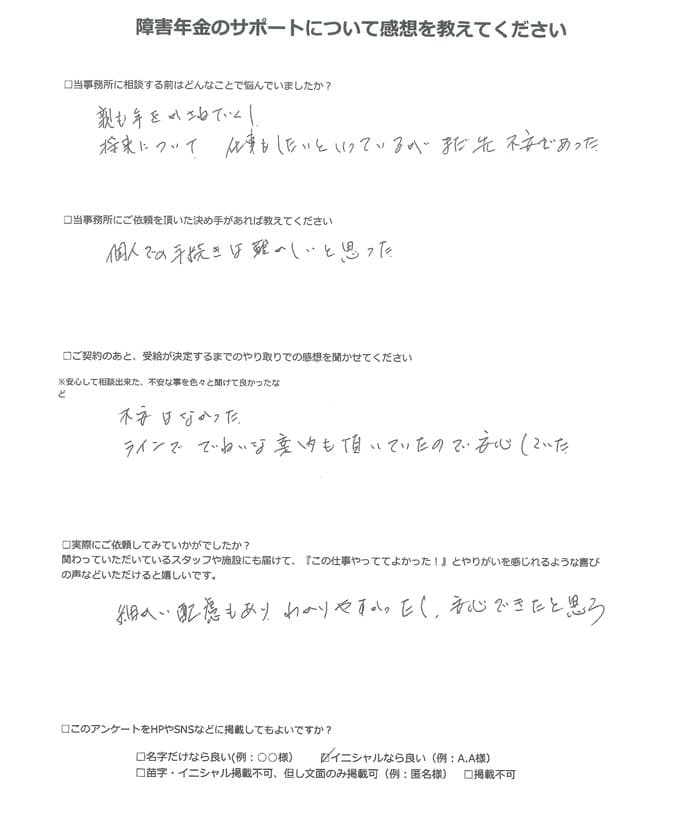 障害年金のサポートについて感想を教えてください
□当事務所に相談する前はどんなことで悩んでいましたか？
親も年をかさねていくし
将来について 仕事もしたいといっているが まだ先 不安であった
□当事務所にご依頼を頂いた決め手があれば教えてください
個人での手続きは難かしいと思った
□ご契約のあと、受給が決定するまでのやり取りでの感想を聞かせてください
※安心して相談出来た、不安な事を色々と聞けて良かったな
ど
不安はなかった
ラインで ていねいな案内も頂いていたので安心していた
□実際にご依頼してみていかがでしたか？
関わっていただいているスタッフや施設にも届けて、『この仕事やっててよかった！』とやりがいを感じれるような喜び
の声などいただけると嬉しいです。
細かい配慮もあり わかりやすかったし、安心できたと思う
□このアンケートをHPやSNSなどに掲載してもよいですか？
□名字だけなら良い(例：○○様） ☑イニシャルなら良い（例：A.A様）
□苗字・イニシャル掲載不可、但し文面のみ掲載可（例：匿名様） □掲載不可